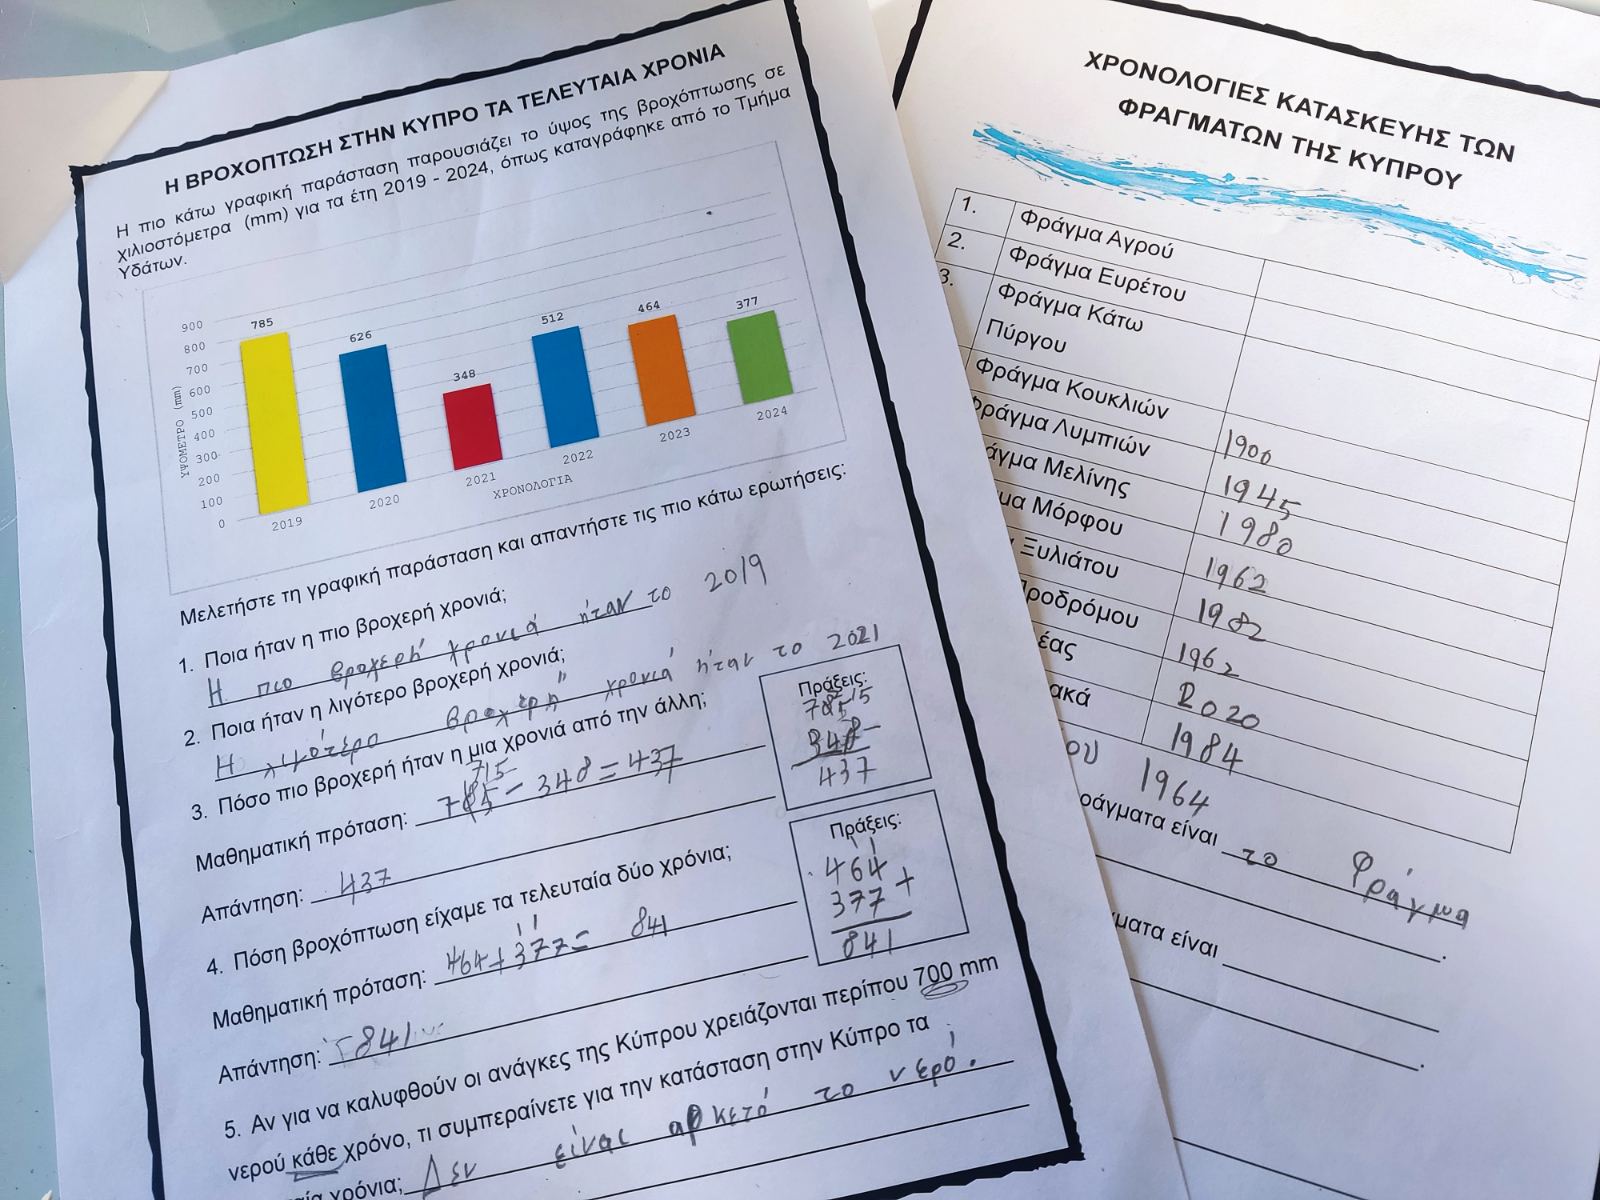 Η ΒΡΟΧΟΠΤΩΣΗ ΣΤΗΝ ΚΥΠΡΟ ΤΑ ΤΕΛΕΥΤΑΙΑ ΧΡΟΝΙΑ
Η πιο κάτω γραφική παράσταση παρουσιάζει το ύψος της βροχόπτωσης σε
χιλιοστόμετρα (mm) για τα έτη 2019 - 2024, όπως καταγράφηκε από το Τμήμα
Υδάτων.
900
800
700
600
500
400
300
200
100
0
ΥΨΟΜΕΤΡΟ (mm)
785
626
348
512
464
377
2019
2020
2021
2022
2023
2024
ΧΡΟΝΟΛΟΓΙΑ
Μελετήστε τη γραφική παράσταση και απαντήστε τις πιο κάτω ερωτήσεις:
1. Ποια ήταν η πιο βροχερή χρονιά;
Η πιο βροχερή χρονιά ήταν το 2019
2. Ποια ήταν η λιγότερο βροχερή χρονιά;
Η λιγότερο βροχερή χρονιά ήταν το 2021
3. Πόσο πιο βροχερή ήταν η μια χρονιά από την άλλη;
Μαθηματική πρόταση: 785 - 348 = 437
Απάντηση: 437
Πράξεις:
785
348 -
437
4. Πόση βροχόπτωση είχαμε τα τελευταία δύο χρόνια;
Μαθηματική πρόταση: 464 + 377 = 841
Απάντηση: 841
Πράξεις:
464
377 +
841
5. Αν για να καλυφθούν οι ανάγκες της Κύπρου χρειάζονται περίπου 700 mm
νερού κάθε χρόνο, τι συμπεραίνετε για την κατάσταση στην Κύπρο τα
χρόνια; Δεν είναι αρκετό το νερό.
ΧΡΟΝΟΛΟΓΙΕΣ ΚΑΤΑΣΚΕΥΗΣ ΤΩΝ
ΦΡΑΓΜΑΤΩΝ ΤΗΣ ΚΥΠΡΟΥ
1. Φράγμα Αγρού
2. Φράγμα Ευρέτου
3. Φράγμα Κάτω
Πύργου
Φράγμα Κουκλιών 1900
Φράγμα Λυμπιών 1945
άγμα Μελίνης 1980
μα Μόρφου 1962
Ξυλιάτου 1982
Προδρόμου 1962
έας 2020
ακά 1984
ου 1964
ράγματα είναι το Φράγμα
γματα είναι